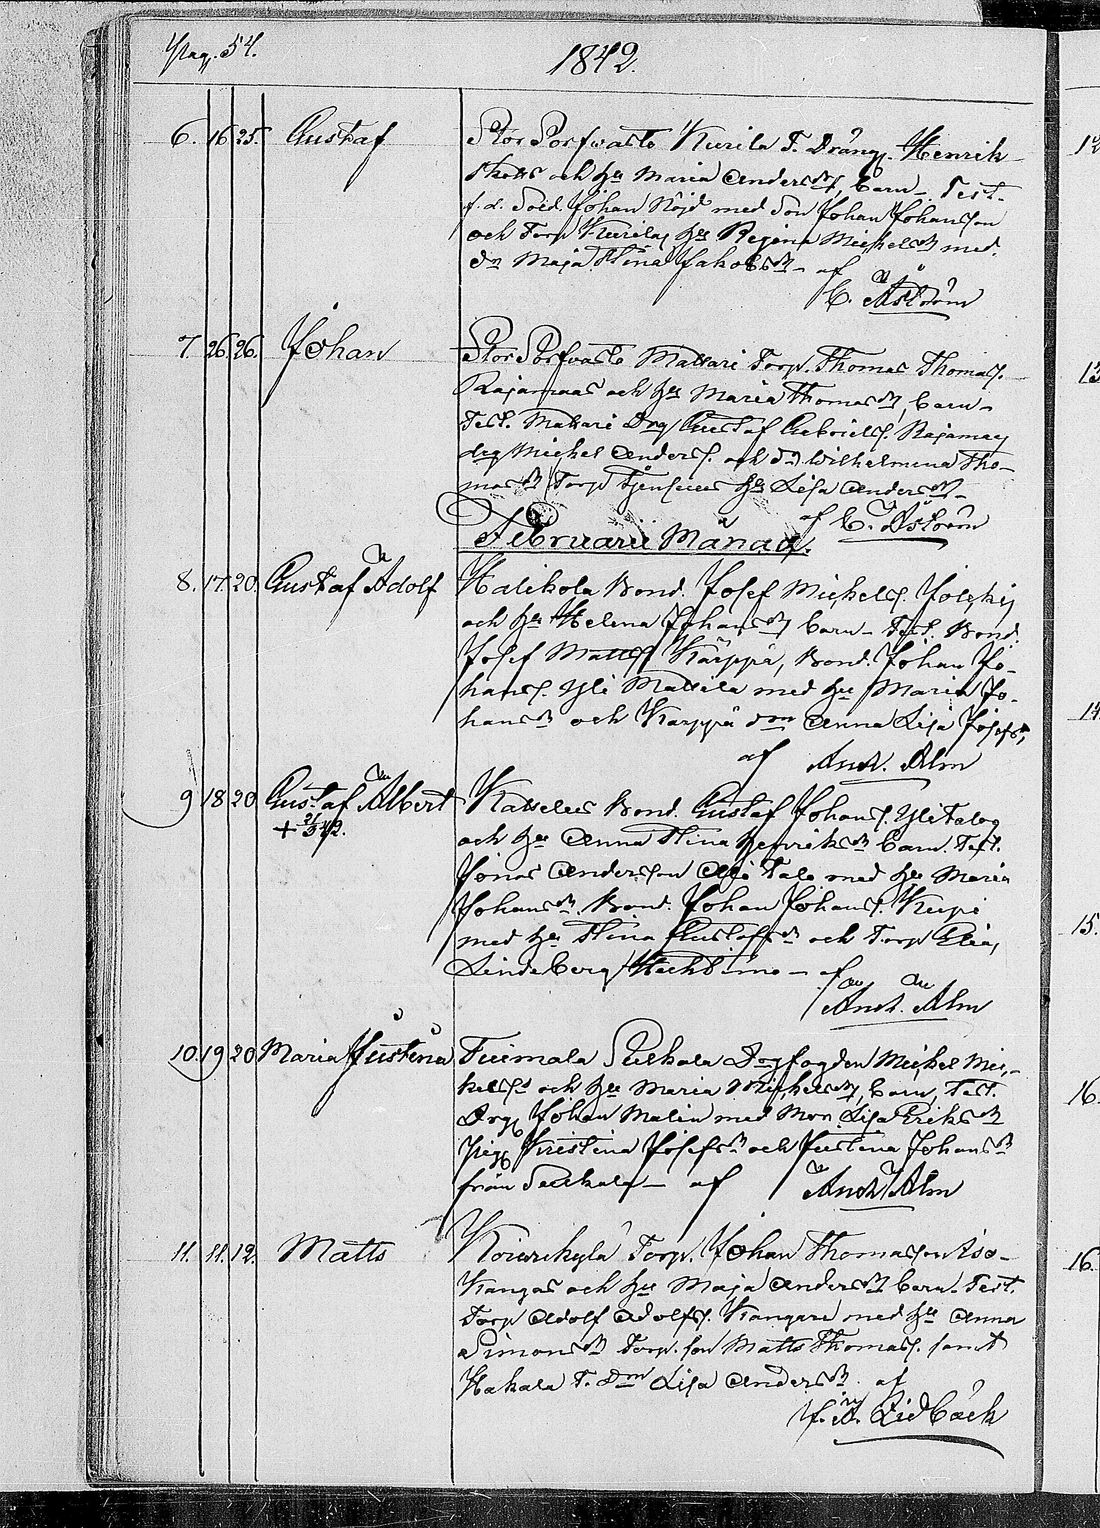 Pag. 54.
1842.
6. 16 25. Gustaf Stor Porfwasto Kurila T. Dräng. Henrik
och hu Maria Andersdr, barn – Test.
f. d. Sold. Johan Nöjd med Son Johan Johansson
och Torp Kurilas hu Regina Michelsdr med
dr Maja Stina Jakobsdr – af
C. Åström
7. 26. 26. Johan Stor Porfwasto Mattari Torp. Thomas Thomass.
Rajamaas och hu Maria Thomasdr, barn –
Test. Mattari Drg Gustaf Gabriels. Rajamaa
drg Michel Anders. och d. Wilhelmina Tho-
masdr, Torp hu Lisa Andersdr –
af C. Åström
Februarii Månad.
8. 17. 20. Gustaf Adolf Halikola Bond. Josef Michels. Joleski
och hu Helena Johansdr barn – Test. Bond.
Josef Matts Käyppä, Bond. Johan Jo-
hans. Yli Mattila med hu Maria Jo-
hansdr och Karppä dm Anna Lisa Josefs,
af And. Alm
9 18 20 Gustaf Albert Bond. Gustaf Johans. Ylitalo
+ 21/3 42. och hu Anna Stina Henriksdr barn. Test.
Jonas Andersson Ali Talo med hu Maria
Johansdr. Bond. Johan Johans. Kupi
med hu Stina Gustafsdr och Torp Elias
Lindeberg – af
And. Alm
10. 19 20 Maria Justina Tuimala Sukala Drgfogden Michel Mi-
kelss och hu Maria Michelsdr, barn, Test.
Drg Johan Malin med Mor Lisa Eriksdr
Pig Kristina Josefsdr och Justina Johansdr
från Sukala – af And. Alm
11. 11. 12. Matts Koiwikylä Torp. Johan Thomasson Iso-
Kangas och hu Maja Andersdr barn – Test.
Torp Adolf Adolfs. Kangari med hu Anna
Simonsdr Torp. son Matts Thomass. samt
Hakala T. dm Lisa Andersdr. af
Lidbäck
12
13
14
15.
16.
16.